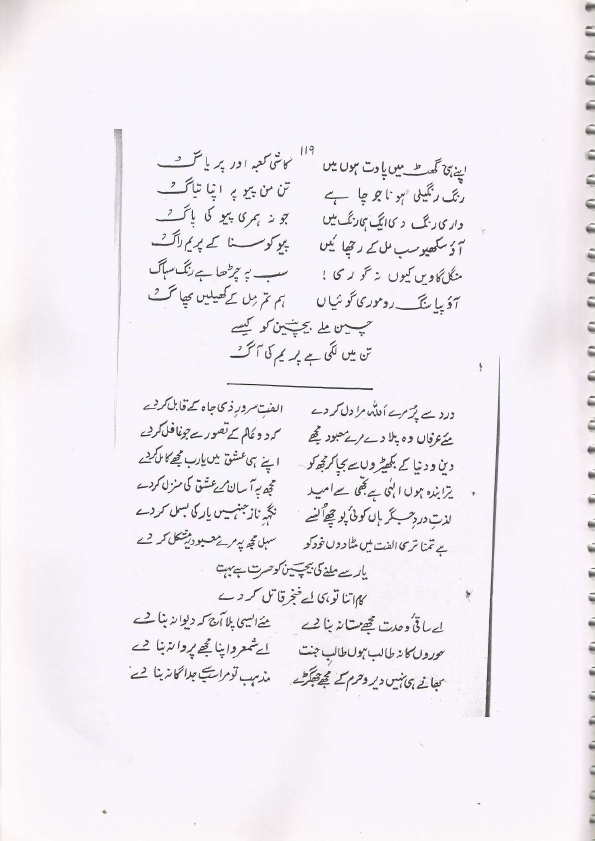 ۱۱۹
اپنے ہی گھٹ میں پاوت ہوں میں کاشی کعبہ اور پریاگ
رنگ رنگیلی ہونا جو چاہے تن من پیو پر اپنا تیاگ
واری رنگ دی ایک ہی رنگ میں جو نہ ہمری پیو کی پاگ
آؤ سکھیو سب مل کے رجھائیں پیو کو سنا کے پریم راگ
منگل گاویں کیوں نہ گوری! سب پہ چڑھا ہے رنگ سہاگ
آؤ پیا سنگ رو موری گوئیاں ہم تم مل کے کھیلیں پھاگ
چین ملے بیچین کو کیسے
تن میں لگی ہے پریم کی آگ
درد سے پُر مرے اللہ مرا دل کر دے الفتِ سرورِ ذی جاہ کے قابل کر دے
مئے عرفاں وہ پلا دے مرے معبود مجھے کہ دو عالم کے تصور سے جو غافل کر دے
دین و دنیا کے بکھیڑوں سے بچا کر مجھ کو اپنے ہی عشق میں یارب مجھے کامل کر دے
ترا بندہ ہوں الٰہی ہے تجھی سے امید مجھ پہ آسان مرے عشق کی منزل کر دے
لذتِ دردِ جگر ہاں کوئی پوچھے اُنسے نگہِ ناز جنہیں یار کی بسمل کر دے
ہے تمنا تری الفت میں مٹا دوں خود کو سہل مجھ پہ مرے معبود یہ مشکل کر دے
یار سے ملنے کی بیچین کو حسرت ہے بہت
کام اتنا تو ہی اے خنجرِ قاتل کر دے
اے ساقیٔ وحدت مجھے مستانہ بنا دے مئے ایسی پلا آج کہ دیوانہ بنا دے
حوروں کا نہ طالب ہوں نہ طالبِ جنت اے شمع رو اپنا مجھے پروانہ بنا دے
بھاتے ہی نہیں دیر و حرم کے مجھے جھگڑے مذہب تو مرا سب سے جداگانہ بنا دے